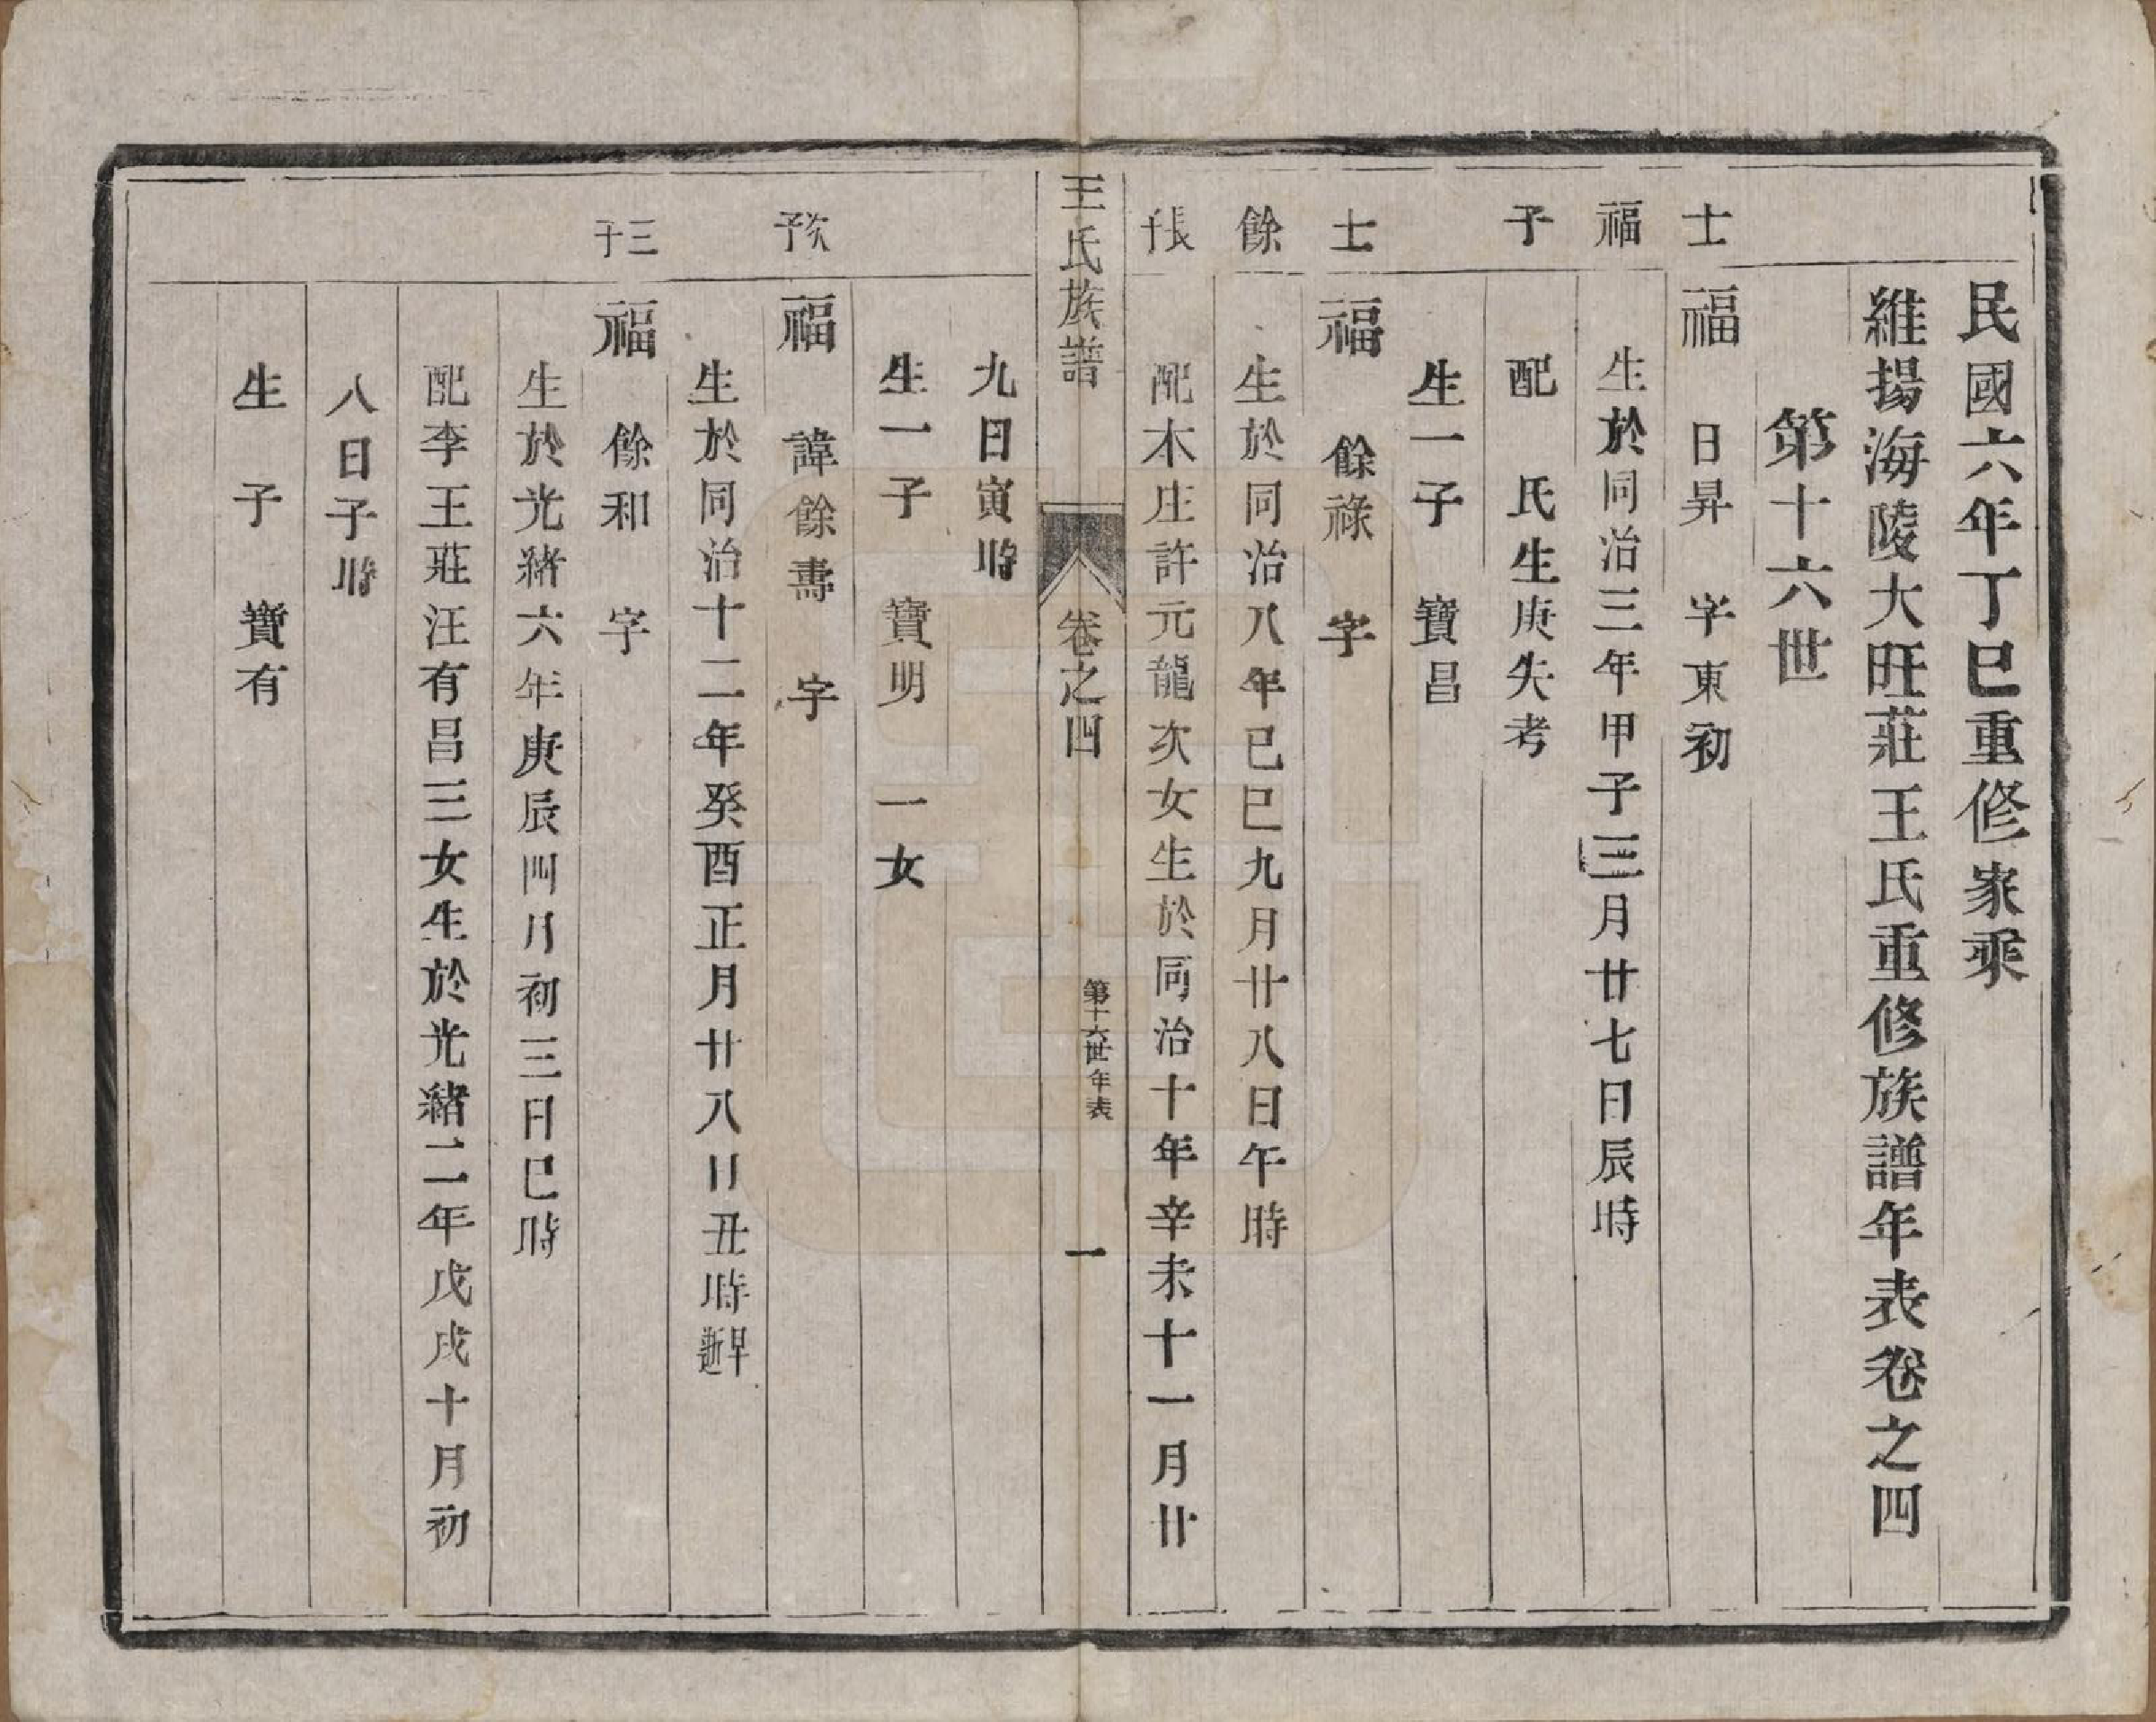 民國六年丁巳重修家乘
維揚海陵大旺莊王氏重修族譜年表卷之四
第十六世
士福子
福 日昇 字東初
生於同治三年甲子三月廿七日辰時
配 氏生庚失考
生一子 寶昌
士餘長子
福 餘祿 字
生於同治八年己巳九月廿八日午時
配木庄許元龍次女生於同治十年辛未十一月廿
王氏族譜 卷之四 第十六世年表 一
九日寅時
生一子 寶明 一女
次子
福 諱餘壽 字
生於同治十二年癸酉正月廿八日丑時早逝
三子
福 餘和 字
生於光緒六年庚辰四月初三日巳時
配李王莊汪有昌三女生於光緒二年戊戌十月初
八日子時
生 子 寶有